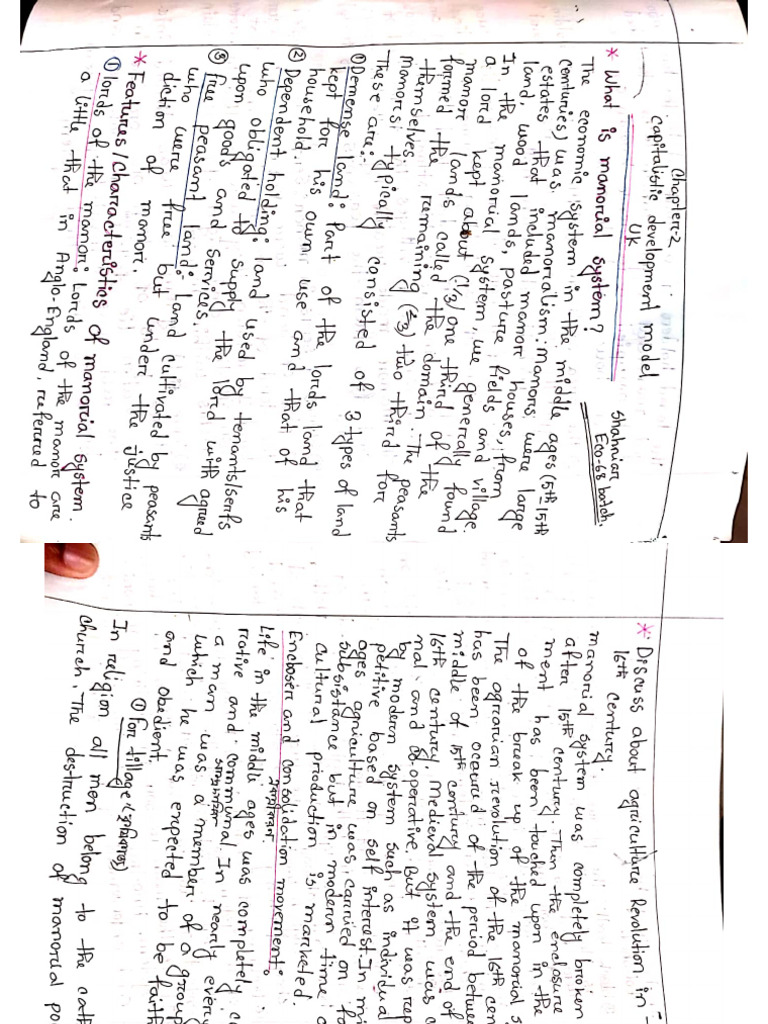 Chapter-2
capitalistic development model
UK
Shahriar
Eco-68 batch.
* What is manorial system?
The economic system in the middle ages (5th-15th
centuries) was manorialism. Manors were large
estates that included manor houses, farm
land, wood lands, pasture fields and village.
In the manorial system, we generally found
a lord kept about (1/3) one third of the
manor lands called the domain. The peasants
formed the remaining (2/3) two third for
themselves.
Manors typically consisted of 3 types of land
These are:
① Demense land: Part of the lords land that
kept for his own use and that of his
household.
② Dependent holding: land used by tenants/serfs
who obligated to supply the lord with agreed
upon goods and services.
③ free peasant land: land cultivated by peasants
who were free but under the justice
diction of manor.
* Features/Characteristics of manorial system.
① lords of the manor: Lords of the manor are
a little that in Anglo-England, referred to
* Discuss about agriculture Revolution in
16th century.
manorial system was completely broken
after 15th century. Then the enclosure
ment has been touched upon in the
of the break up of the manorial s
The agrarian revolution of the 16th cen
has been occured of the period between
middle of 15th century and the end of
16th century. Medieval system was c
mal and co.operative. But it was rep
by modern system such as individual
petitive based on self interest. In mi
ages agriculture was carried on fo
subsistance but in modern time a
cultural production is marketed
Encloser and consolidation movement:
Life in the middle ages was completely c
rative and communal. In nearly every
a man was a member of a group
which he was expected to be faith
and obedient.
① for tillage
In religion all men belong to the cath
church. The destruction of manorial po